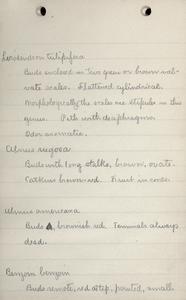 Liriodendron tulipifera
Buds enclosed in two green or brown val-
vate scales. Flattened cylindrical.
Morphologically the scales are stipules in this
genus. Pith with diaphragms.
Odor aromatic.
Alnus rugosa
Buds with long stalks, brown, ovate.
Catkins brown-red. Fruit in cones.
Ulmus americana
Buds brownish red. Terminals always
dead.
Benzoin benzoin
Buds remote, red at tip, pointed, small